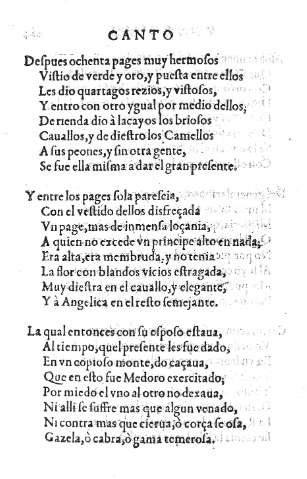 CANTO
Despues ochenta pages muy hermosos
Vistio de verde y oro, y puesta entre ellos
Les dio quartagos rezios, y vistosos,
Y entro con otro ygual por medio dellos;
De rienda dio à lacayos los briosos
Cauallos, y de diestro los Camellos
A sus peones, y sin otra gente,
Se fue ella misma a dar el gran presente.
Y entre los pages sola parescia,
Con el vestido dellos disfreçada
Vn page, mas de inmensa loçania,
A quien no excede vn principe alto en nada;
Era alta, era membruda, y no tenia
La flor con blandos vicios estragada,
Muy diestra en el cauallo, y elegante,
Y à Angelica en el resto semejante.
La qual entonces con su esposo estaua,
Al tiempo, quel presente les fue dado,
En vn copioso monte, do caçaua,
Que en esto fue Medoro exercitado;
Por miedo el vno al otro no dexaua,
Ni alli se suffre mas que algun venado,
Ni contra mas que cierua, ò corça se osa,
Gazela, ò cabra, ò gama temerosa.